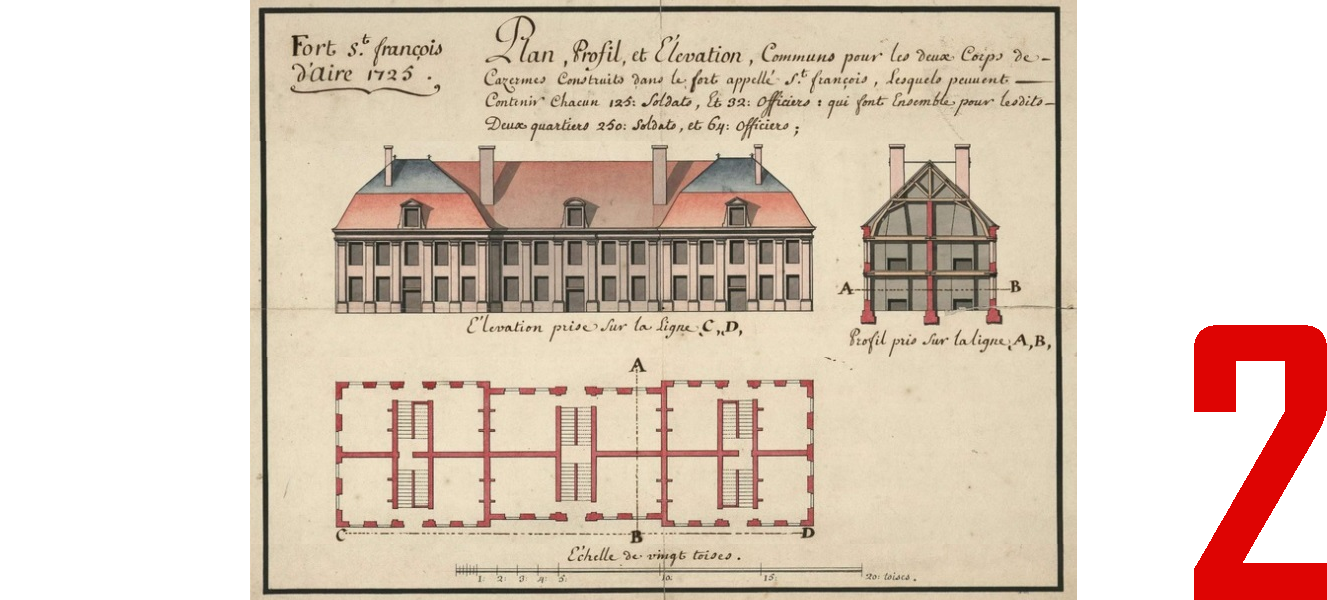 Fort S.t françois
d'Aire 1725.
Plan, Profil, et Élevation, Communs pour les deux Corps de
Cazermes Construits dans le fort appellé S.t françois, Lesquels peuuent
Contenir Chacun 125: Soldats, Et 32: Officiers: qui font Ensemble pour lesdits
Deux quartiers 250: Soldats, et 64: Officiers;
Élevation prise Sur la Ligne C,,D,
A B
Profil pris Sur la ligne A,B,
A
C B D
Echelle de vingt toises.
1: 2: 3: 4: 5: 10: 15: 20: toises.
2